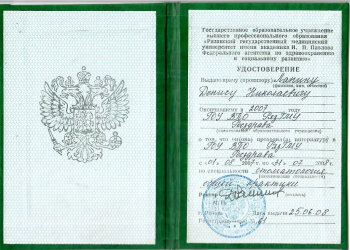 Государственное образовательное учреждение
высшего профессионального образования
«Рязанский государственный медицинский
университет имени академика И. П. Павлова
Федерального агентства по здравоохранению
и социальному развитию»
УДОСТОВЕРЕНИЕ
Выдано врачу (провизору)
(фамилия, имя, отчество)
Денису Николаевичу
Окончившему в 2007 году
ГОУ ВПО РязГМУ
Росздрава
в том, что он(она) прошел(а) интернатуру в
ГОУ ВПО РязГМУ
Росздрава
с 01. 08 2007 г. по 31. 07 2008 г.
по специальности стоматология
общей практики
Ректор
М.П.
Дата выдачи 25.06.08